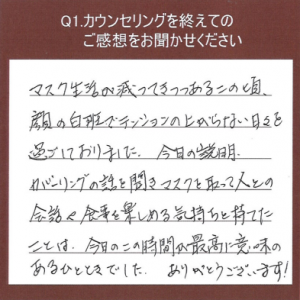 Q1.カウンセリングを終えての
ご感想をお聞かせください
マスク生活が減ってきつつあるこの頃、
顔の白斑でテンションの上がらない日々を
過ごしておりました。今日の説明、
カバーリングの話を聞きマスクを取って人との
会話や食事を楽しめる気持ちを持てた
ことは、今日のこの時間が最高に意味の
あるひとときでした。ありがとうございます!